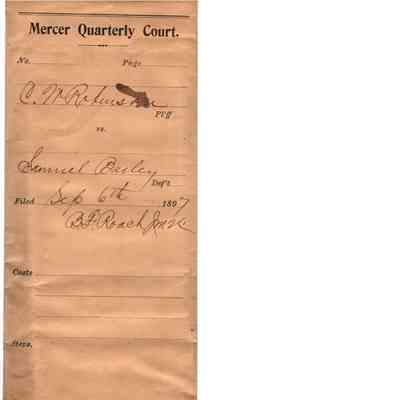 Mercer Quarterly Court.
No. Page
C. W. Robinson
Pl'ff
vs.
Samuel Bailey
Def't
Filed Sep 6th 1897
B. F. Roach
Costs
Steps,